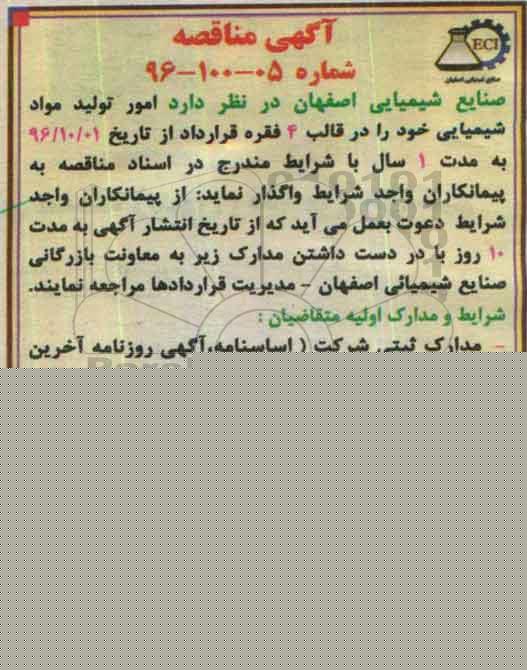 آگهی مناقصه
شماره ۰۵-۱۰۰-۹۶
ECI
صنایع شیمیایی اصفهان
صنایع شیمیایی اصفهان در نظر دارد امور تولید مواد
شیمیایی خود را در قالب ۴ فقره قرارداد از تاریخ ۹۶/۱۰/۰۱
به مدت ۱ سال با شرایط مندرج در اسناد مناقصه به
پیمانکاران واجد شرایط واگذار نماید: از پیمانکاران واجد
شرایط دعوت بعمل می آید که از تاریخ انتشار آگهی به مدت
۱۰ روز با در دست داشتن مدارک زیر به معاونت بازرگانی
صنایع شیمیائی اصفهان - مدیریت قراردادها مراجعه نمایند.
شرایط و مدارک اولیه متقاضیان :
- مدارک ثبتی شرکت ( اساسنامه،آگهی روزنامه آخرین